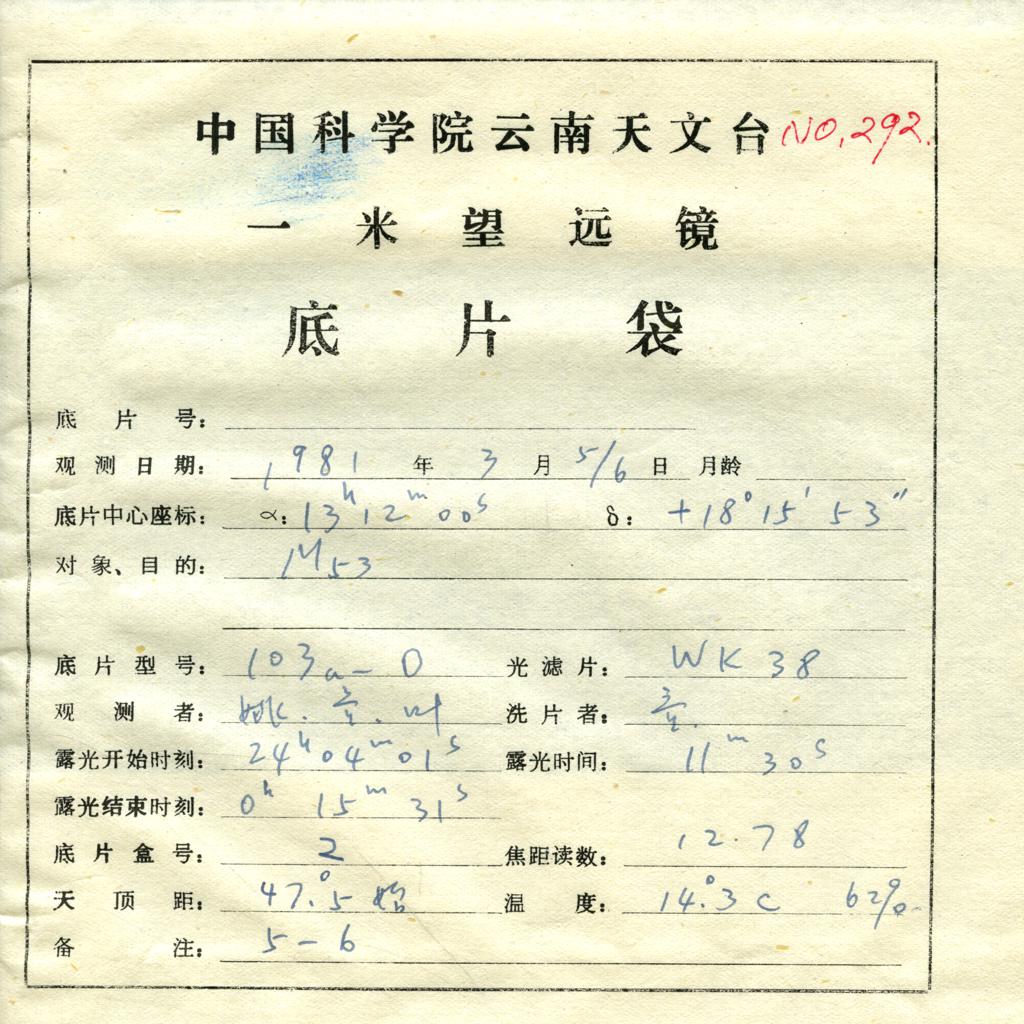 中国科学院云南天文台 NO.292.
一米望远镜
底片袋
底片号:
观测日期: 1981 年 3 月 5/6 日 月龄
底片中心座标: α: 13h 12m 00s δ: +18° 15′ 53″
对象、目的: M53
底片型号: 103a-D 光滤片: WK 38
观测者: 姚. . 叶 洗片者:
露光开始时刻: 24h 04m 01s 露光时间: 11m 30s
露光结束时刻: 0h 15m 31s
底片盒号: 2 焦距读数: 12.78
天顶距: 47.°5 始 温度: 14.°3 C 62%
备注: 5-6